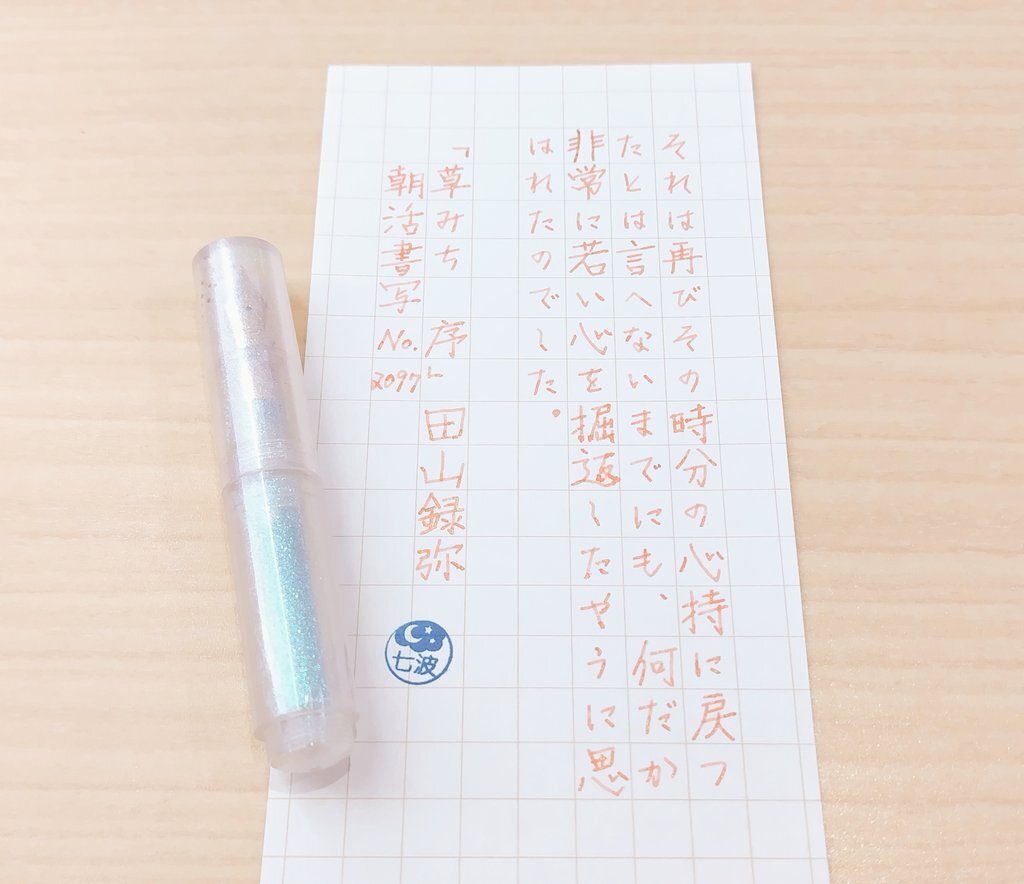 それは再びその時分の心持に戻つ
たとは言へないまでにも、何だか
非常に若い心を掘返したやうに思
はれたのでした。
「草みち 序」 田山録弥
朝活書写 No. 2097
七波